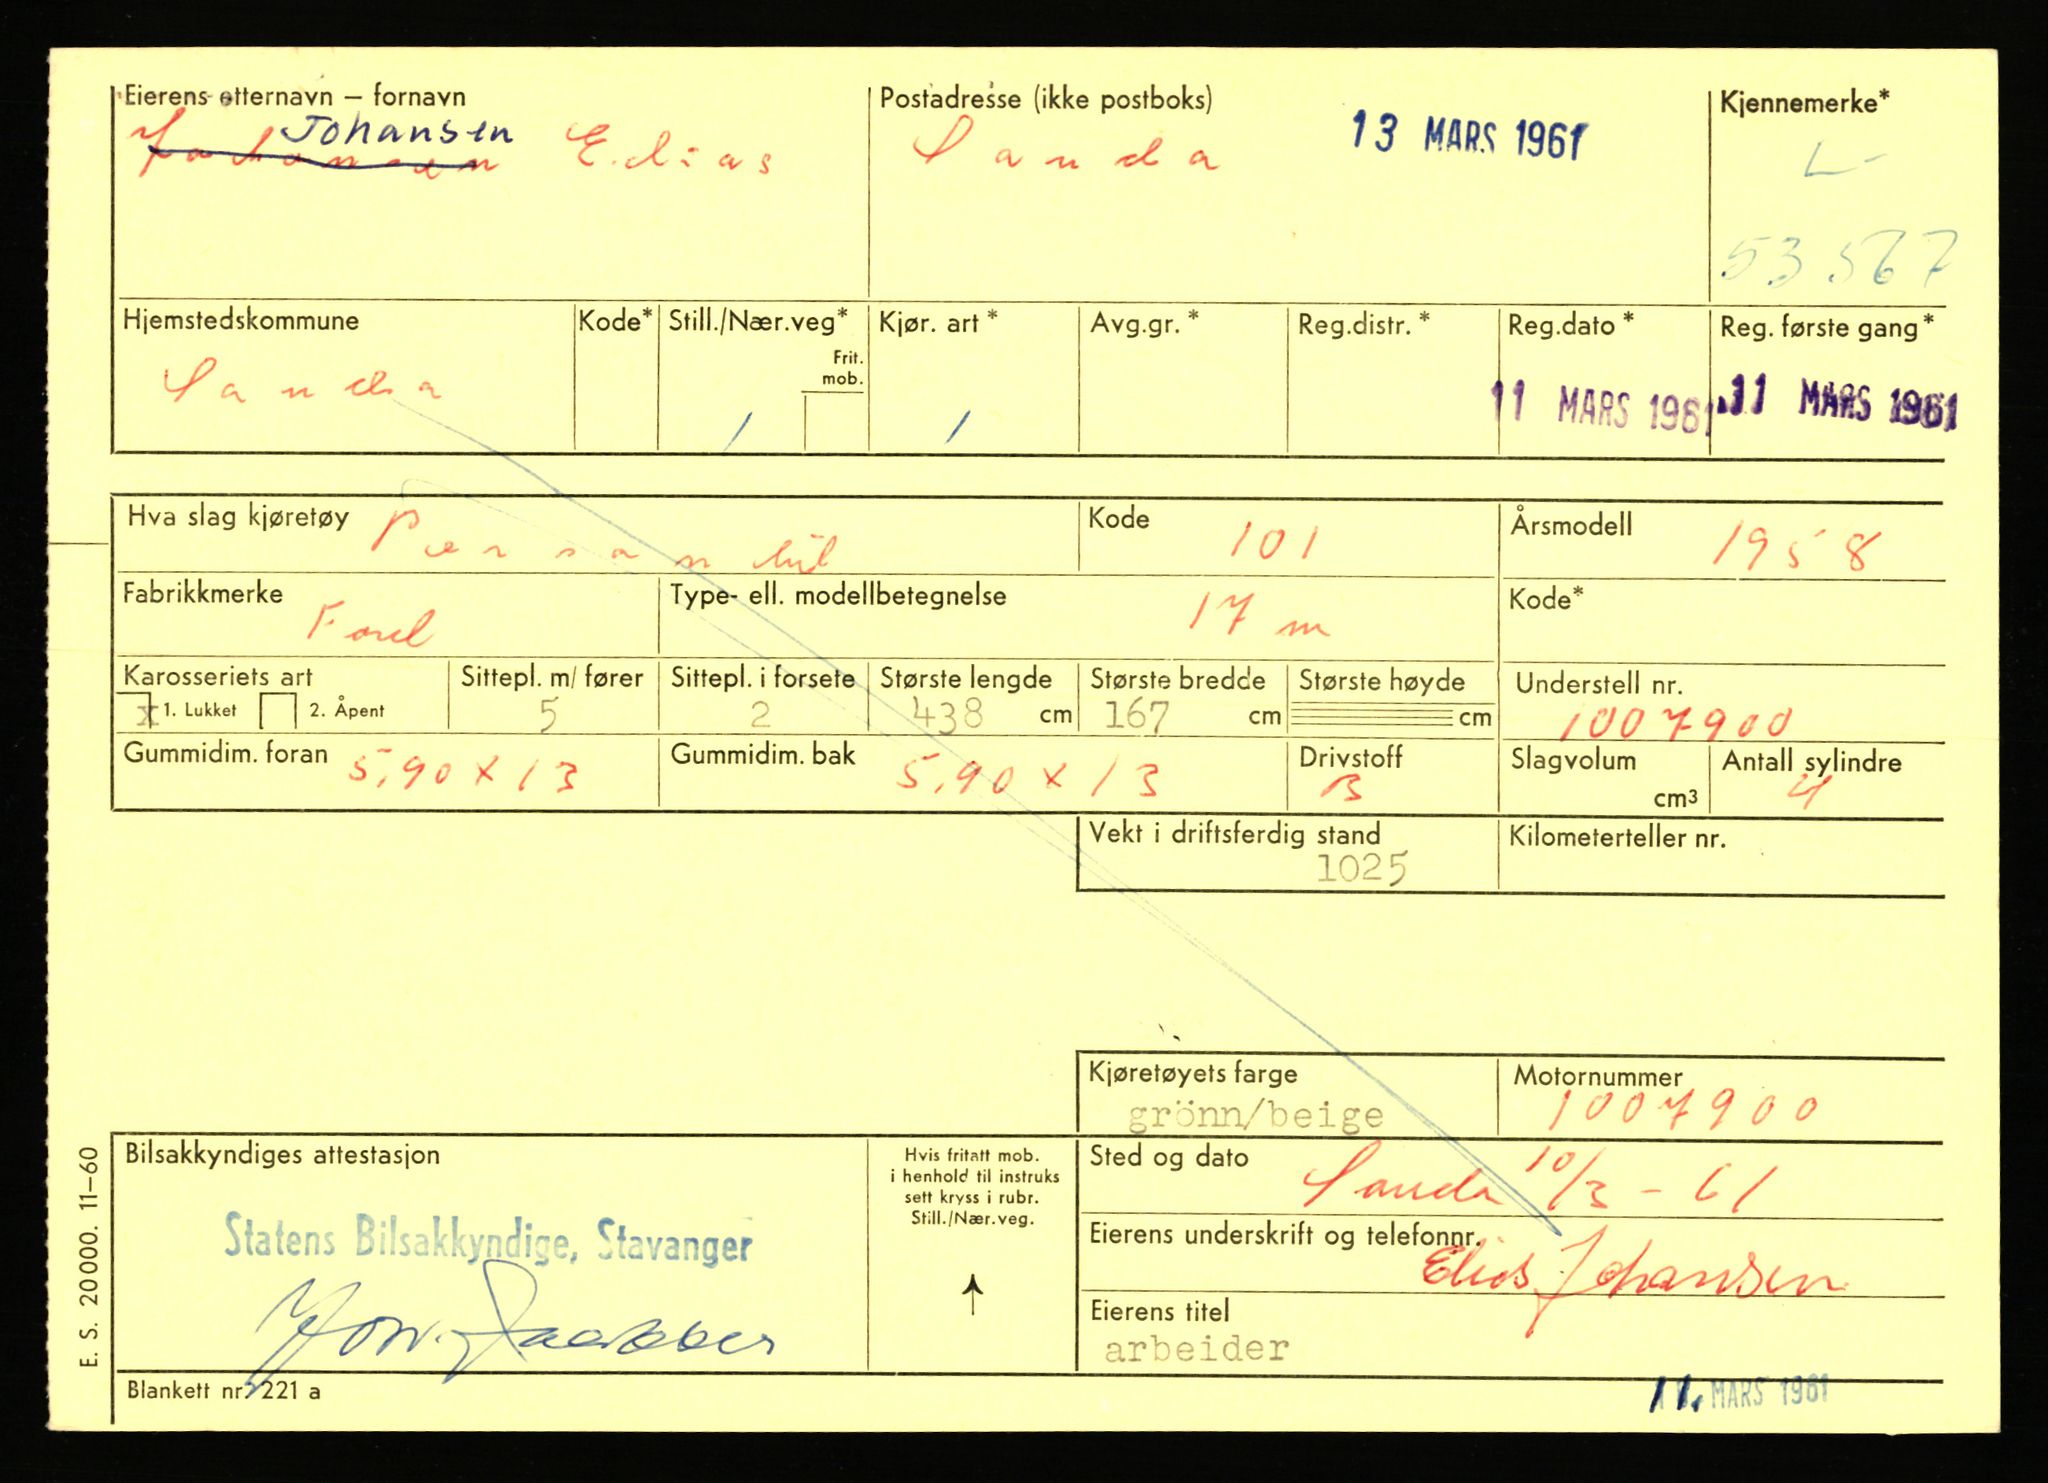 Eierens etternavn – fornavn
Postadresse (ikke postboks)
Kjennemerke*
Johansen
Johansen Elias
Sauda
13 MARS 1961
L-
53567
Hjemstedskommune
Kode*
Still./Nær.veg*
Kjør. art *
Avg.gr. *
Reg.distr. *
Reg.dato *
Reg. første gang *
Frit.
mob.
Sauda
1
1
11 MARS 1961
11 MARS 1961
Hva slag kjøretøy Personbil
Kode 101
Årsmodell 1958
Fabrikkmerke Ford
Type- ell. modellbetegnelse 17 m
Kode*
Karosseriets art
Sittepl. m/ fører
Sittepl. i forsete
Største lengde
Største bredde
Største høyde
Understell nr.
x 1. Lukket
2. Åpent
5
2
438 cm
167 cm
cm
1007900
Gummidim. foran 5,90 x 13
Gummidim. bak 5,90 x 13
Drivstoff B
Slagvolum
cm³
Antall sylindre 4
Vekt i driftsferdig stand
1025
Kilometerteller nr.
Kjøretøyets farge
grönn/beige
Motornummer
1007900
Bilsakkyndiges attestasjon
Statens Bilsakkyndige, Stavanger
Hvis fritatt mob.
i henhold til instruks
sett kryss i rubr.
Still./Nær.veg.
Sted og dato Sauda 10/3 - 61
Eierens underskrift og telefonnr.
Elias Johansen
Eierens titel
arbeider
Blankett nr. 221 a
11. MARS 1961
E. S. 20000. 11–60